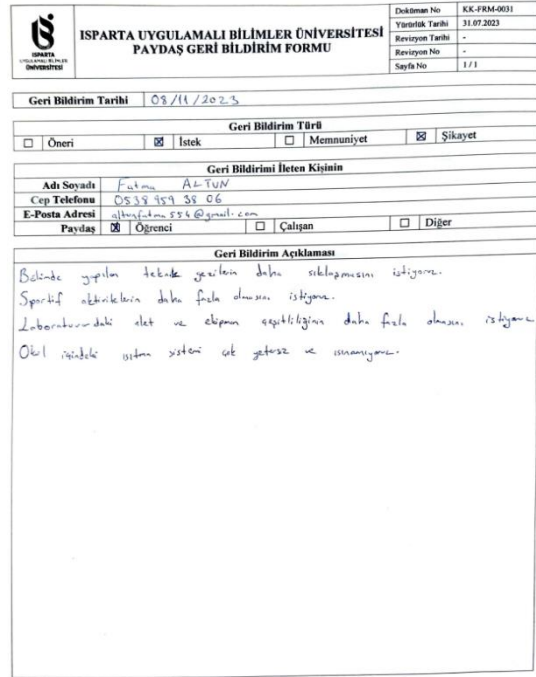 ISPARTA
UYGULAMALI BİLİMLER
ÜNİVERSİTESİ
ISPARTA UYGULAMALI BİLİMLER ÜNİVERSİTESİ
PAYDAŞ GERİ BİLDİRİM FORMU
Doküman No KK-FRM-0031
Yürürlük Tarihi 31.07.2023
Revizyon Tarihi -
Revizyon No -
Sayfa No 1 / 1
Geri Bildirim Tarihi 08/11/2023
Geri Bildirim Türü
☐ Öneri ☒ İstek ☐ Memnuniyet ☒ Şikayet
Geri Bildirimi İleten Kişinin
Adı Soyadı Fatma ALTUN
Cep Telefonu 0538 959 38 06
E-Posta Adresi altunfatma554@gmail.com
Paydaş ☒ Öğrenci ☐ Çalışan ☐ Diğer
Geri Bildirim Açıklaması
Bölümde yapılan teknik gezilerin daha sıklaşmasını istiyoruz.
Sportif aktivitelerin daha fazla olmasını istiyoruz.
Laboratuvardaki alet ve ekipman çeşitliliğinin daha fazla olmasını istiyoruz
Okul içindeki ısıtma sistemi çok yetersiz ve ısınamıyoruz.